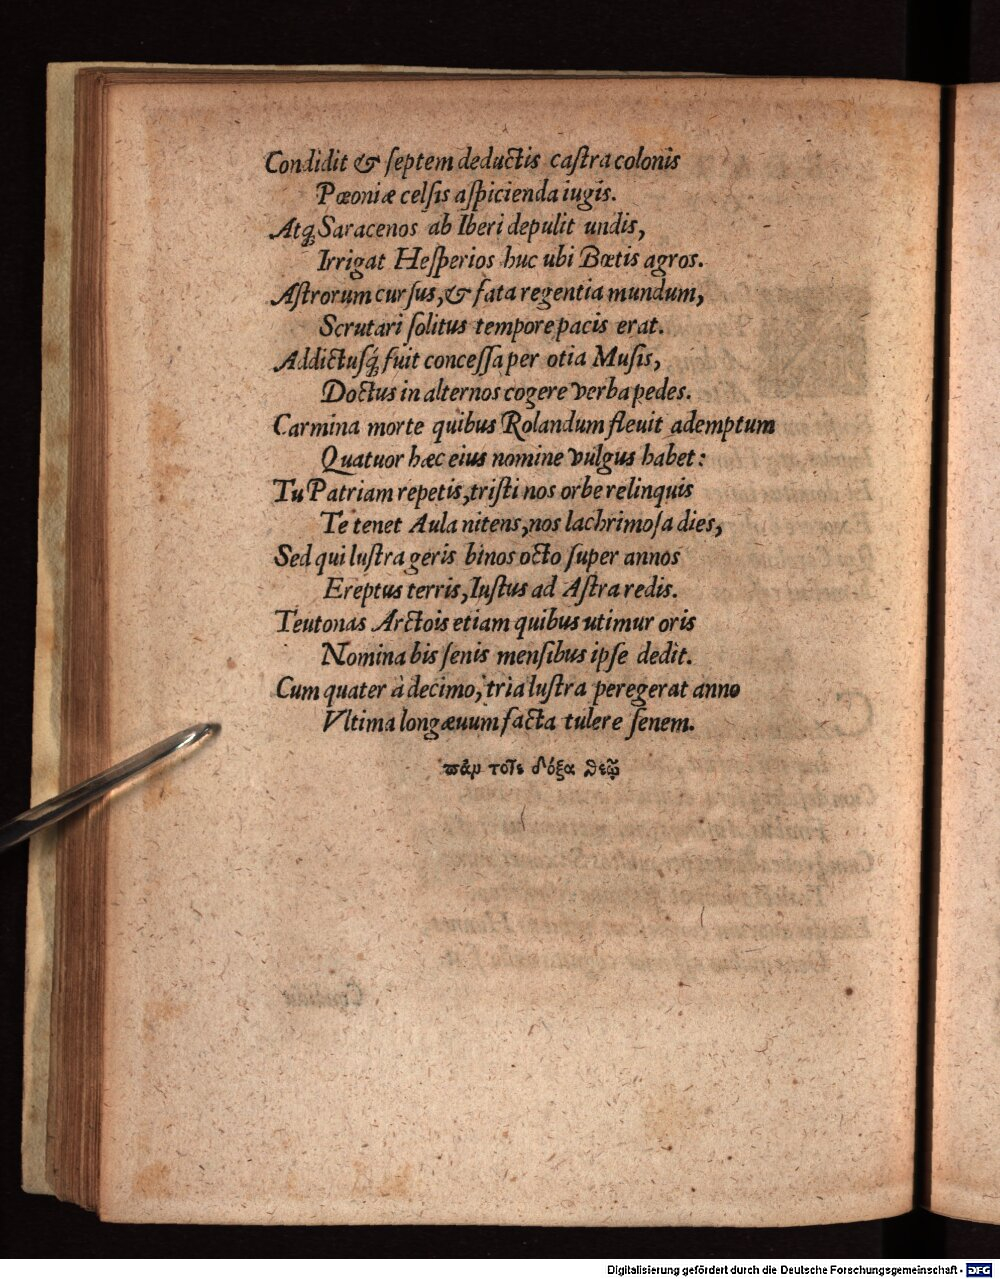 Condidit & ſeptem deductis caſtra colonis
Pœoniæ celſis aſpicienda iugis.
Atq́; Saracenos ab Iberi depulit undis,
Irrigat Heſperios huc ubi Bœtis agros.
Aſtrorum curſus, & fata regentia mundum,
Scrutari ſolitus tempore pacis erat.
Addictuſq́; fuit conceſſa per otia Muſis,
Doctus in alternos cogere verba pedes.
Carmina morte quibus Rolandum fleuit ademptum
Quatuor hæc eius nomine vulgus habet:
Tu Patriam repetis, triſti nos orbe relinquis
Te tenet Aula nitens, nos lachrimoſa dies,
Sed qui luſtra geris binos octo ſuper annos
Ereptus terris, Iuſtus ad Aſtra redis.
Teutonas Arctois etiam quibus utimur oris
Nomina bis ſenis menſibus ipſe dedit.
Cum quater à decimo, tria luſtra peregerat anno
Vltima longæuum facta tulere ſenem.
Digitalisierung gefördert durch die Deutsche Forschungsgemeinschaft - DFG